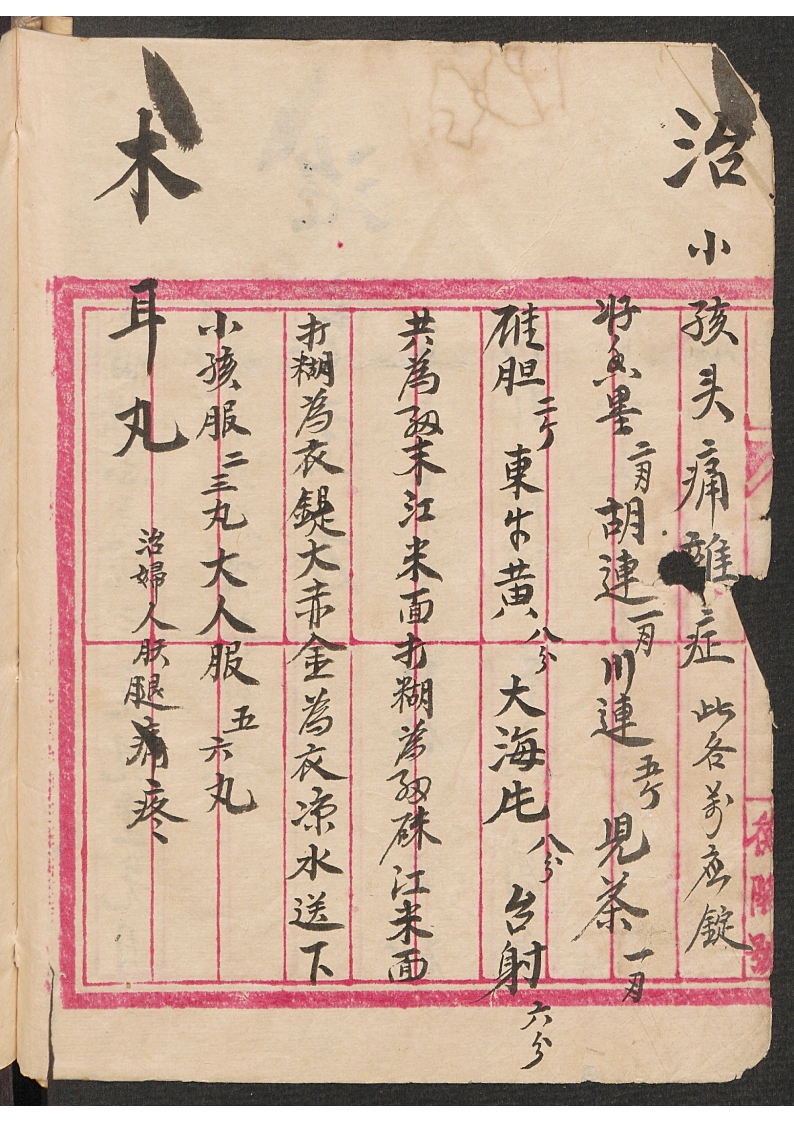 治小孩头痛雜症 此名万应錠
好香墨二月 胡連一月 川連五分 児茶一月
䧿胆二分 東牛黄八分 大海片八分 台射六分
共為細末江米面打糊為細硃江米面
打糊為衣鍉大赤金為衣凉水送下
小孩服二三丸大人服五六丸
木耳丸 治婦人肤腿痛疼